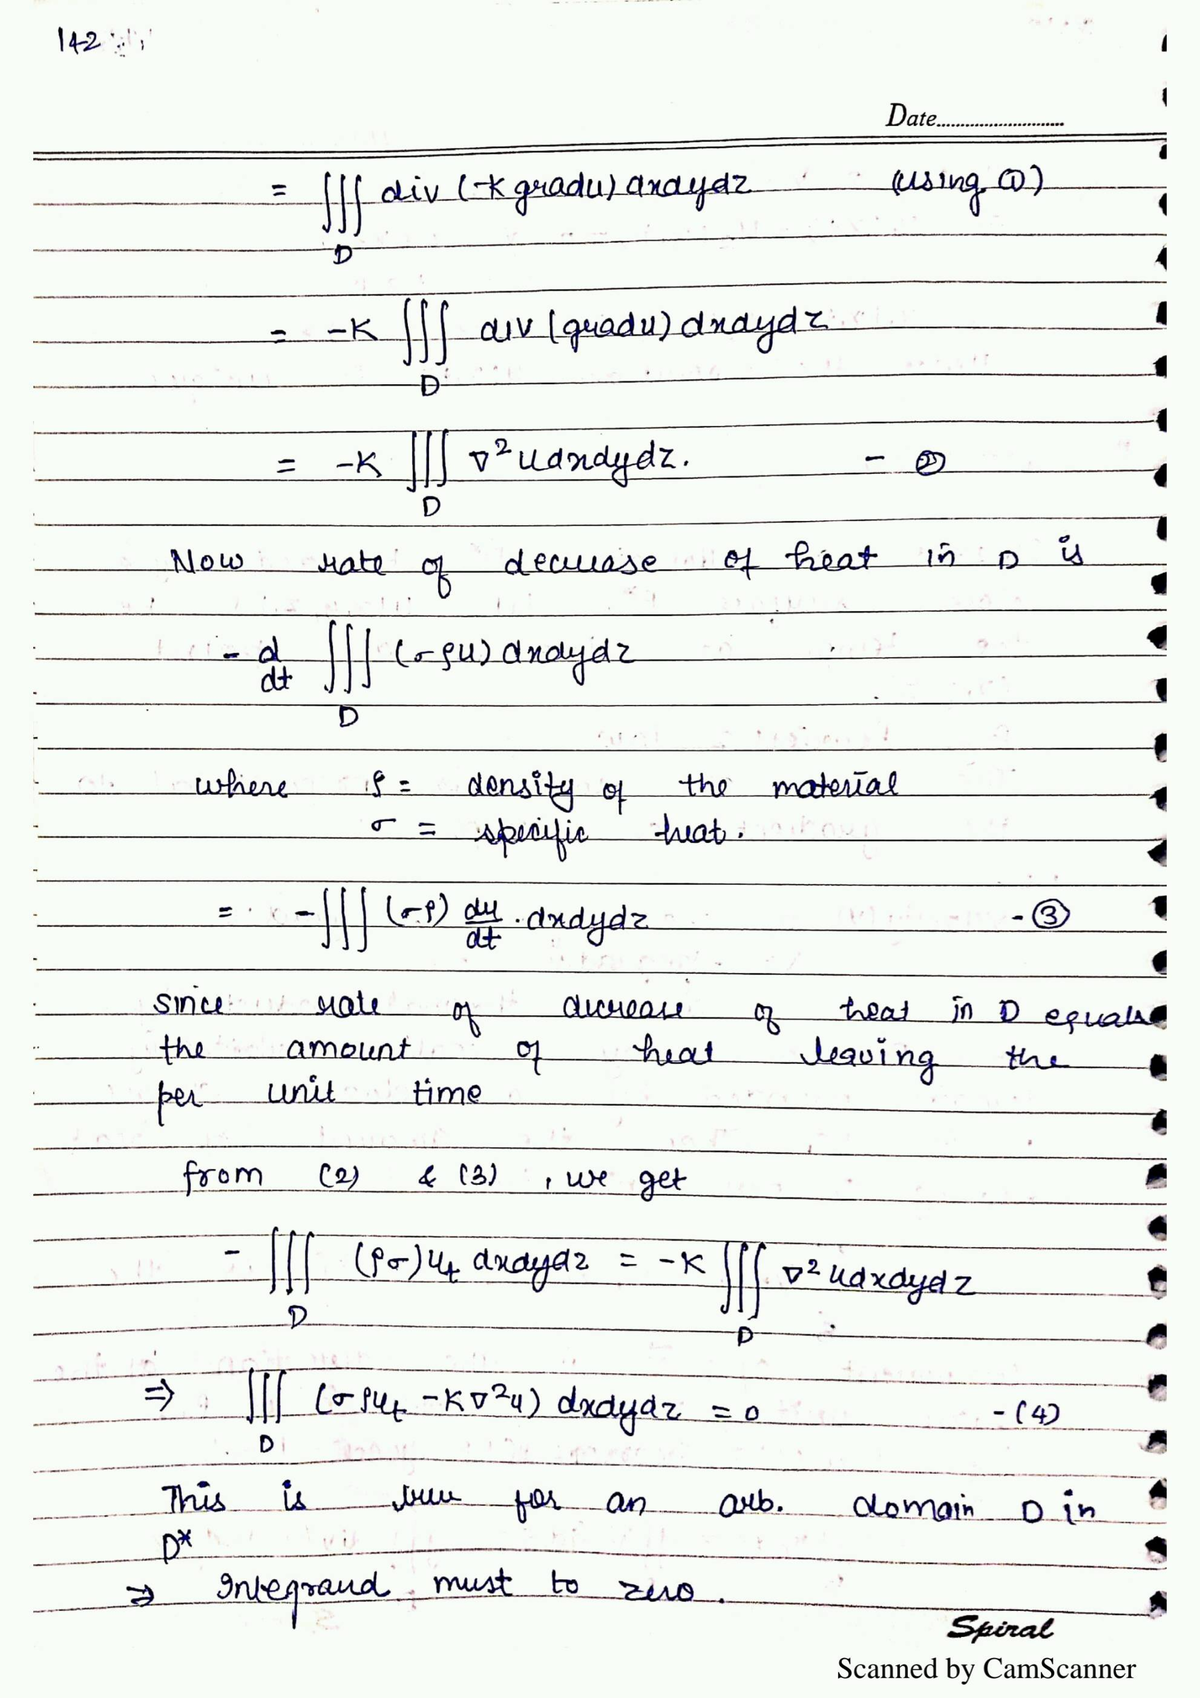 142
Date............................
= ∭_D div (-K gradu) dxdydz (using ①)
= -K ∭_D div (gradu) dxdydz
= -K ∭_D ∇²u dxdydz. - ②
Now rate of decrease of heat in D is
- d/dt ∭_D (σρu) dxdydz
where ρ = density of the material
σ = specific heat.
= -∭ (σρ) du/dt . dxdydz - ③
since rate of decrease of heat in D equals
the amount of heat leaving the
per unit time
from (2) & (3), we get
- ∭_D (ρσ)u_t dxdydz = -K ∭_D ∇²u dxdydz
⇒ ∭_D (σρu_t - K∇²u) dxdydz = 0 - (4)
This is true for an arb. domain D in
D*
⇒ Integrand must to zero.
Spiral
Scanned by CamScanner